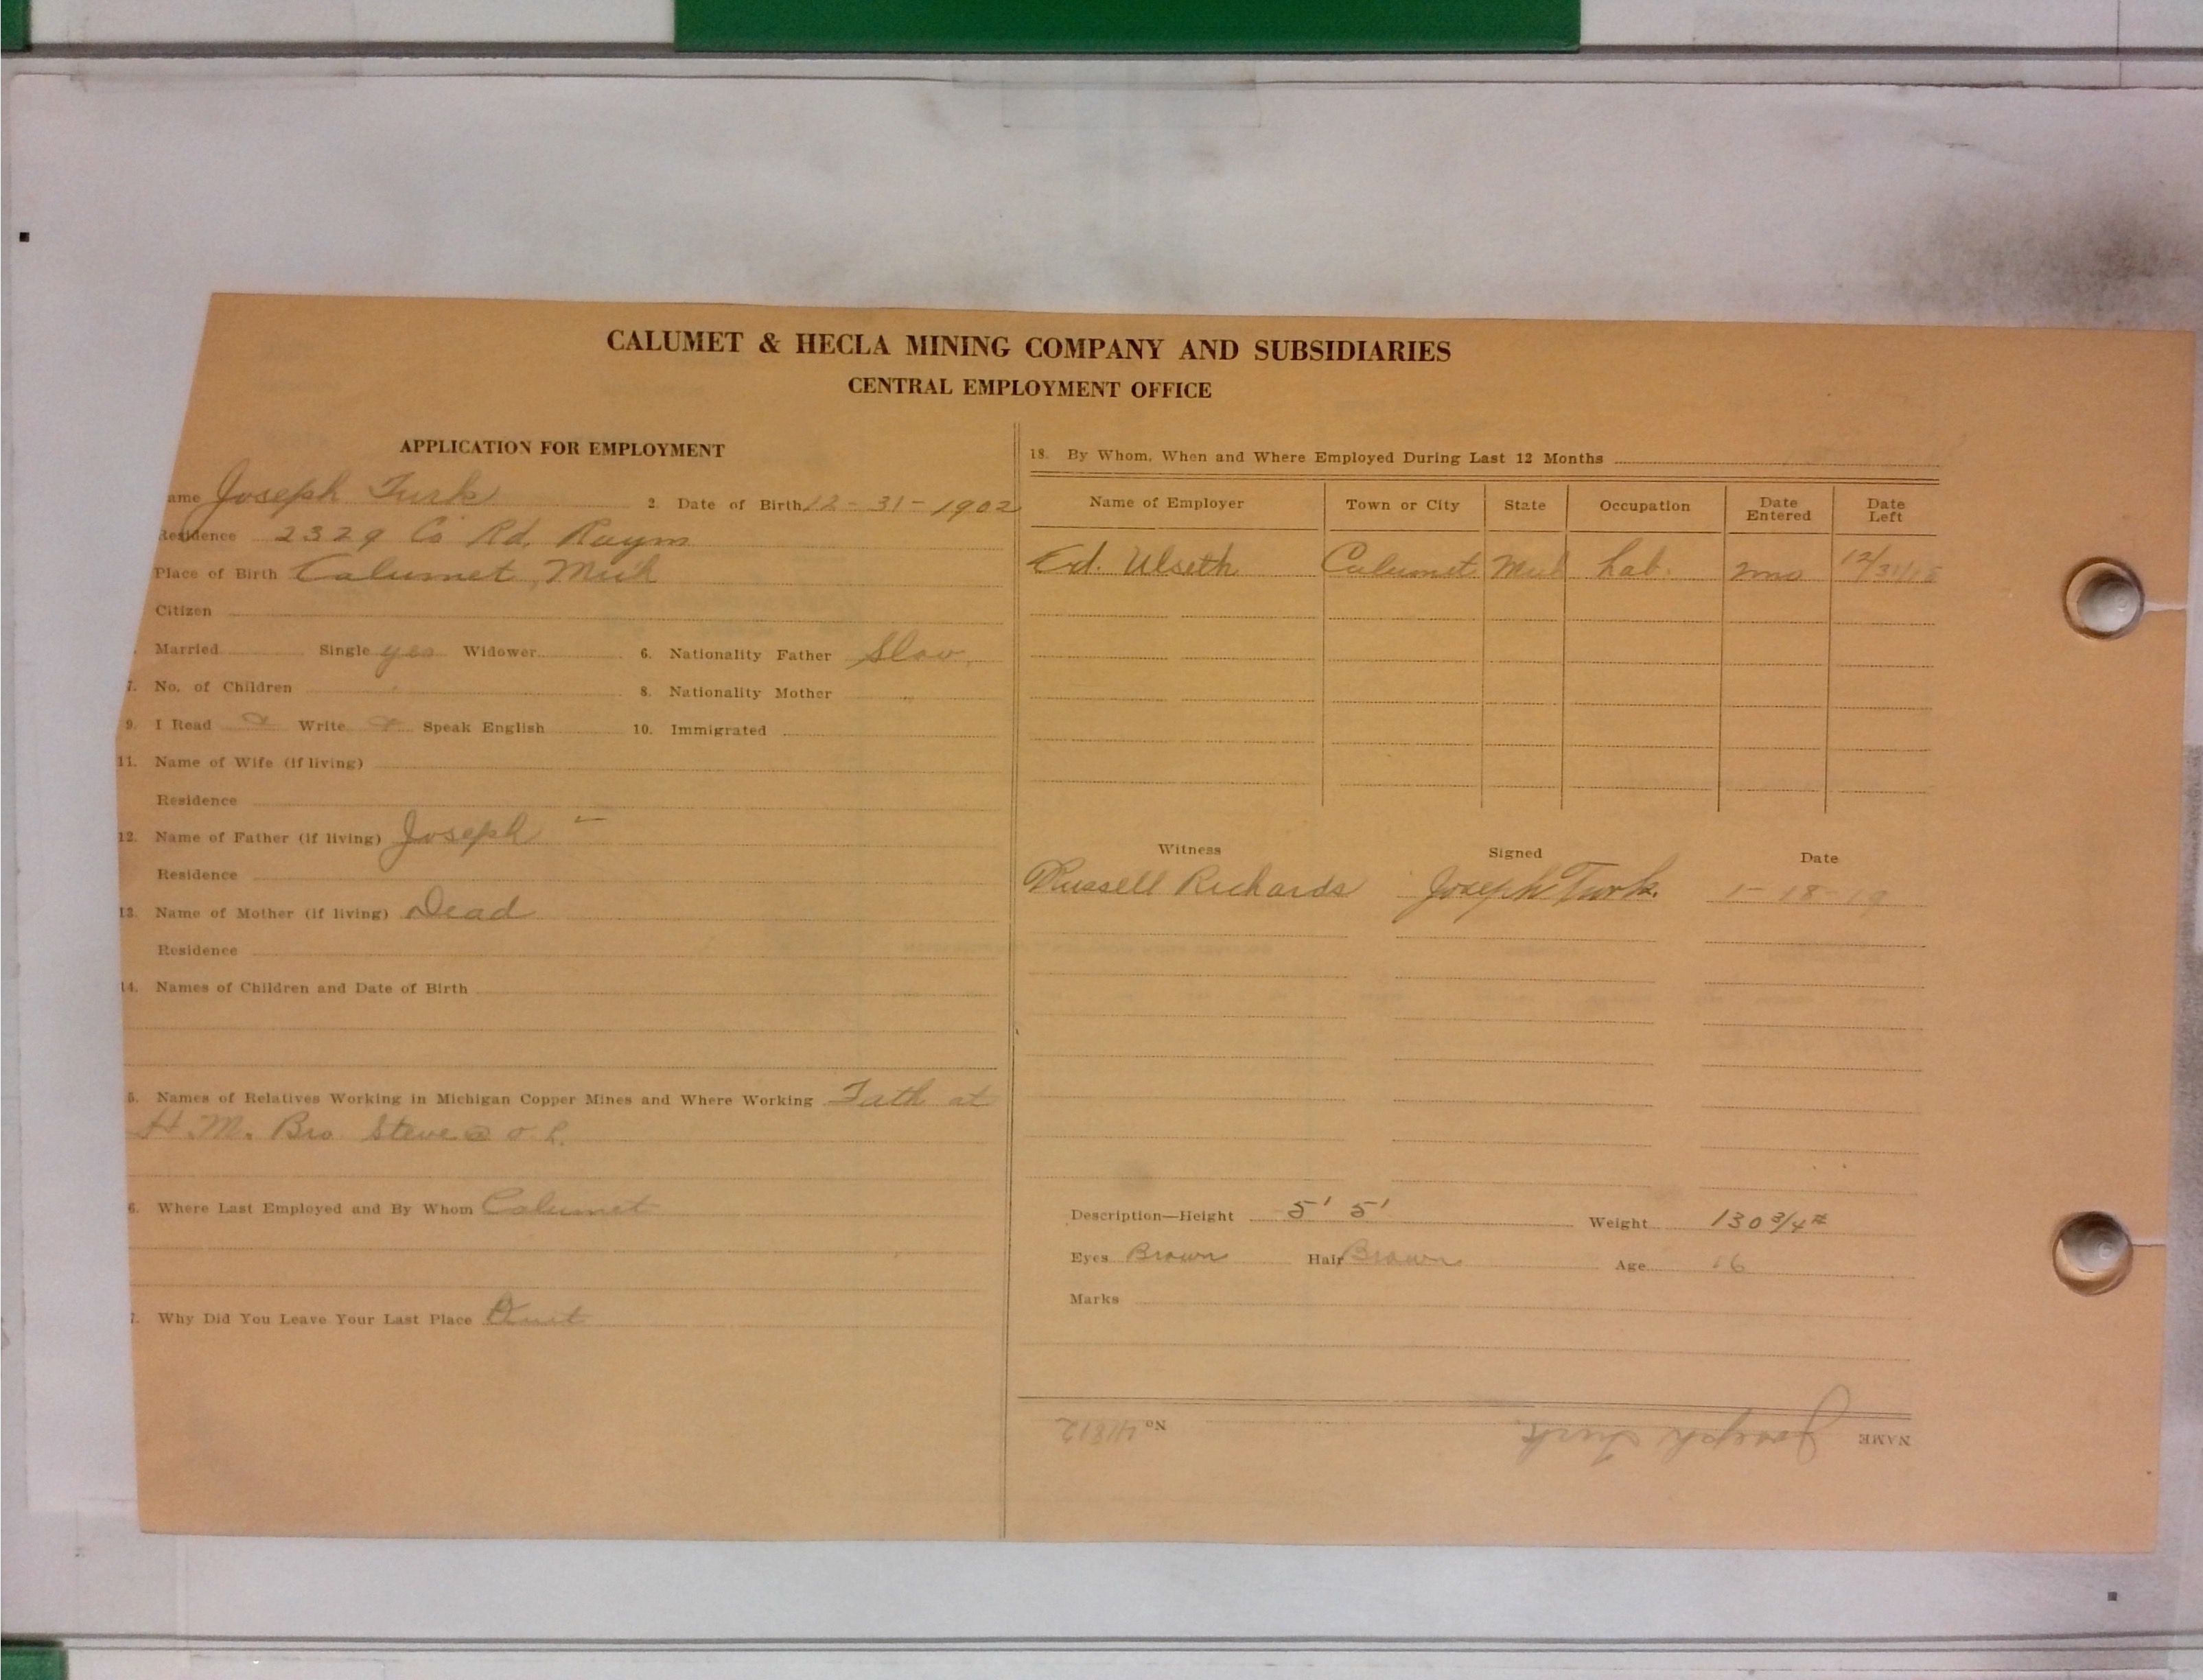 CALUMET & HECLA MINING COMPANY AND SUBSIDIARIES
CENTRAL EMPLOYMENT OFFICE
APPLICATION FOR EMPLOYMENT
ame Joseph Turk 2. Date of Birth 12-31-1902
Residence 2329 Co Rd, Raym
Place of Birth Calumet, Mich
Citizen
Married Single yes Widower 6. Nationality Father Slov.
7. No. of Children 8. Nationality Mother
9. I Read Write Speak English 10. Immigrated
11. Name of Wife (if living)
Residence
12. Name of Father (if living) Joseph
Residence
13. Name of Mother (if living) Dead
Residence
14. Names of Children and Date of Birth
5. Names of Relatives Working in Michigan Copper Mines and Where Working Fath at
H. M. Bro Steve @ O. L.
6. Where Last Employed and By Whom Calumet
7. Why Did You Leave Your Last Place Quit
18. By Whom, When and Where Employed During Last 12 Months
Name of Employer Town or City State Occupation Date Entered Date Left
Ed. Ulseth Calumet Mich Lab. 2mo 12/31/18
Witness Signed Date
Russell Richards Joseph Turk. 1-18-19
Description—Height 5' 5' Weight 130 3/4 #
Eyes Brown Hair Brown Age 16
Marks
NAME Joseph Turk. No 41812